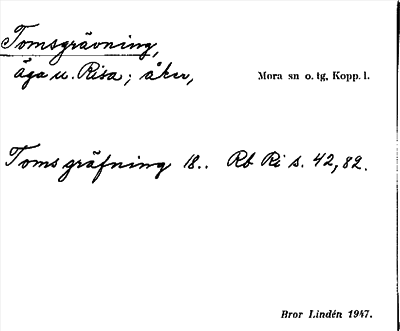 Tomsgrävning,
äga u. Risa; åker,
Mora sn o. tg, Kopp. l.
Toms gräfning 18.. Rb Ri s. 42, 82.
Bror Lindén 1947.